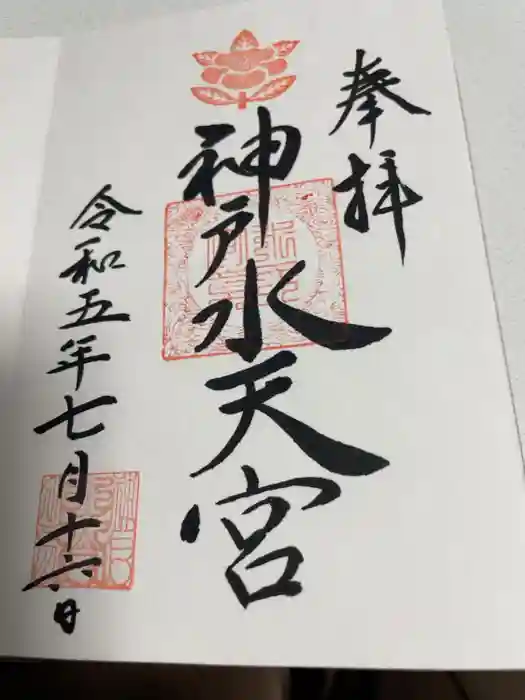 奉拝
神戸水天宮
令和五年七月十六日